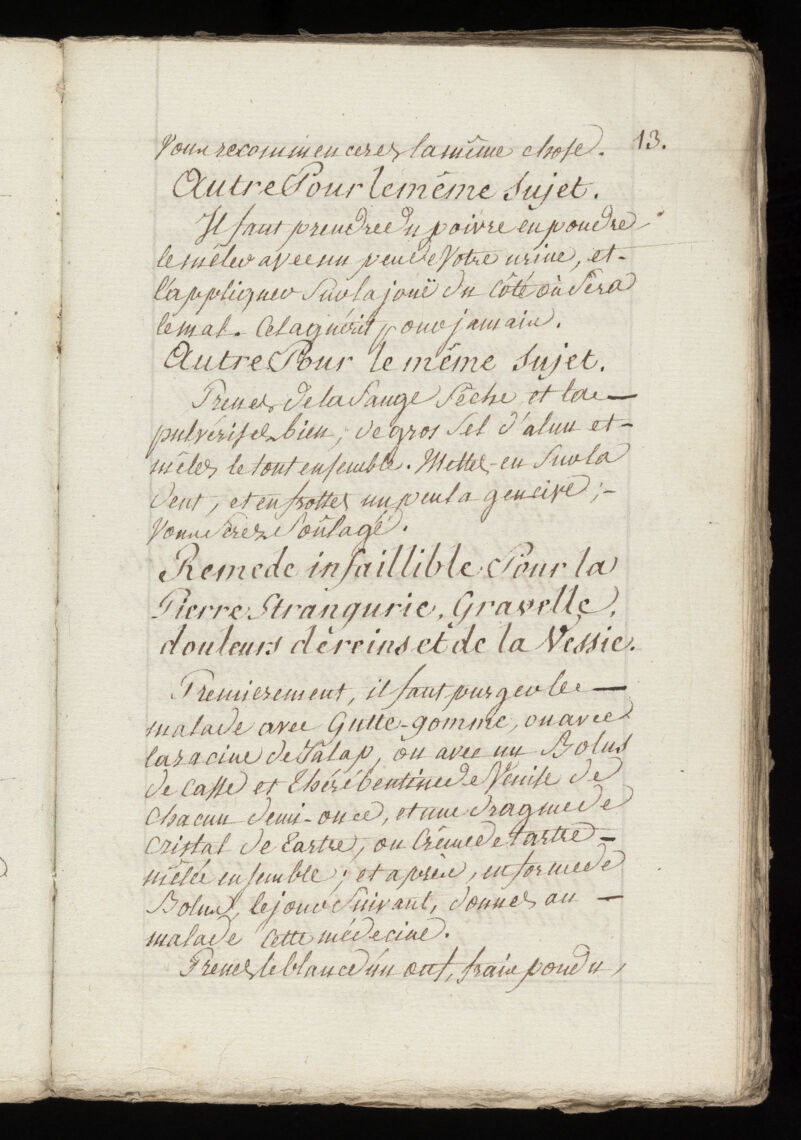 Vous recommencerez la même chose. 13.
Autre Pour le même Sujet.
Il faut prendre du poivre en poudre
le mêler avec un peu de Votre urine, et -
l'appliquer Sur la joüe du Côté où Sera
le mal. Cela guérit pour jamais.
Autre Pour le même Sujet.
Prenez de la Sauge Sêche et la -
pulvérisez bien, de gros Sel d'alun et -
mêlez le tout ensemble. Mettez-en Sur la
Dent, et en frottez un peu la gencive ; -
Vous Serez Soûlagé.
Remede infaillible Pour la
Pierre, Strangurie, Gravelle,
douleurs dé reins et de la Vessie.
Premierement, il faut purger le -
malade avec Gutte-gomme, ou avec
la racine de Jalap, ou avec un Bolus
de Casse et Thérébentine de Venise de
Chacun demi-once, et une dragme de
Cristal de Tartre, ou Crême de tartre -
mêlée ensemble ; et après, en forme de
Bolus, le jour Suivant, donnez au -
malade Cette médecine.
Prenez le blanc d'un œuf, frais pondu,